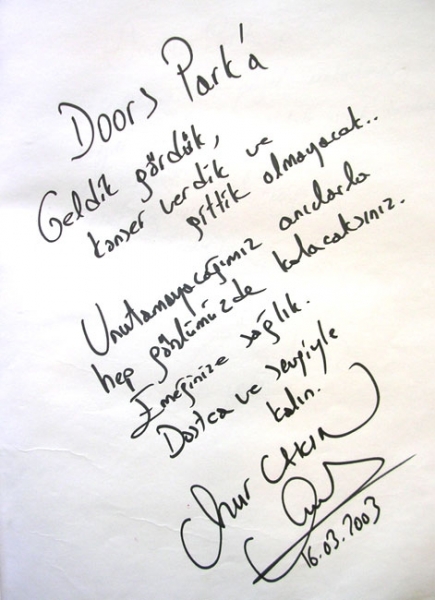 Doors Park'a
Geldik gördük,
konser verdik ve
gittik olmayacak..
Unutamayacağımız anılarla
hep gönlümüzde kalacaksınız.
Emeğinize sağlık.
Dostca ve sevgiyle
kalın.
Onur Akın
16.03.2003